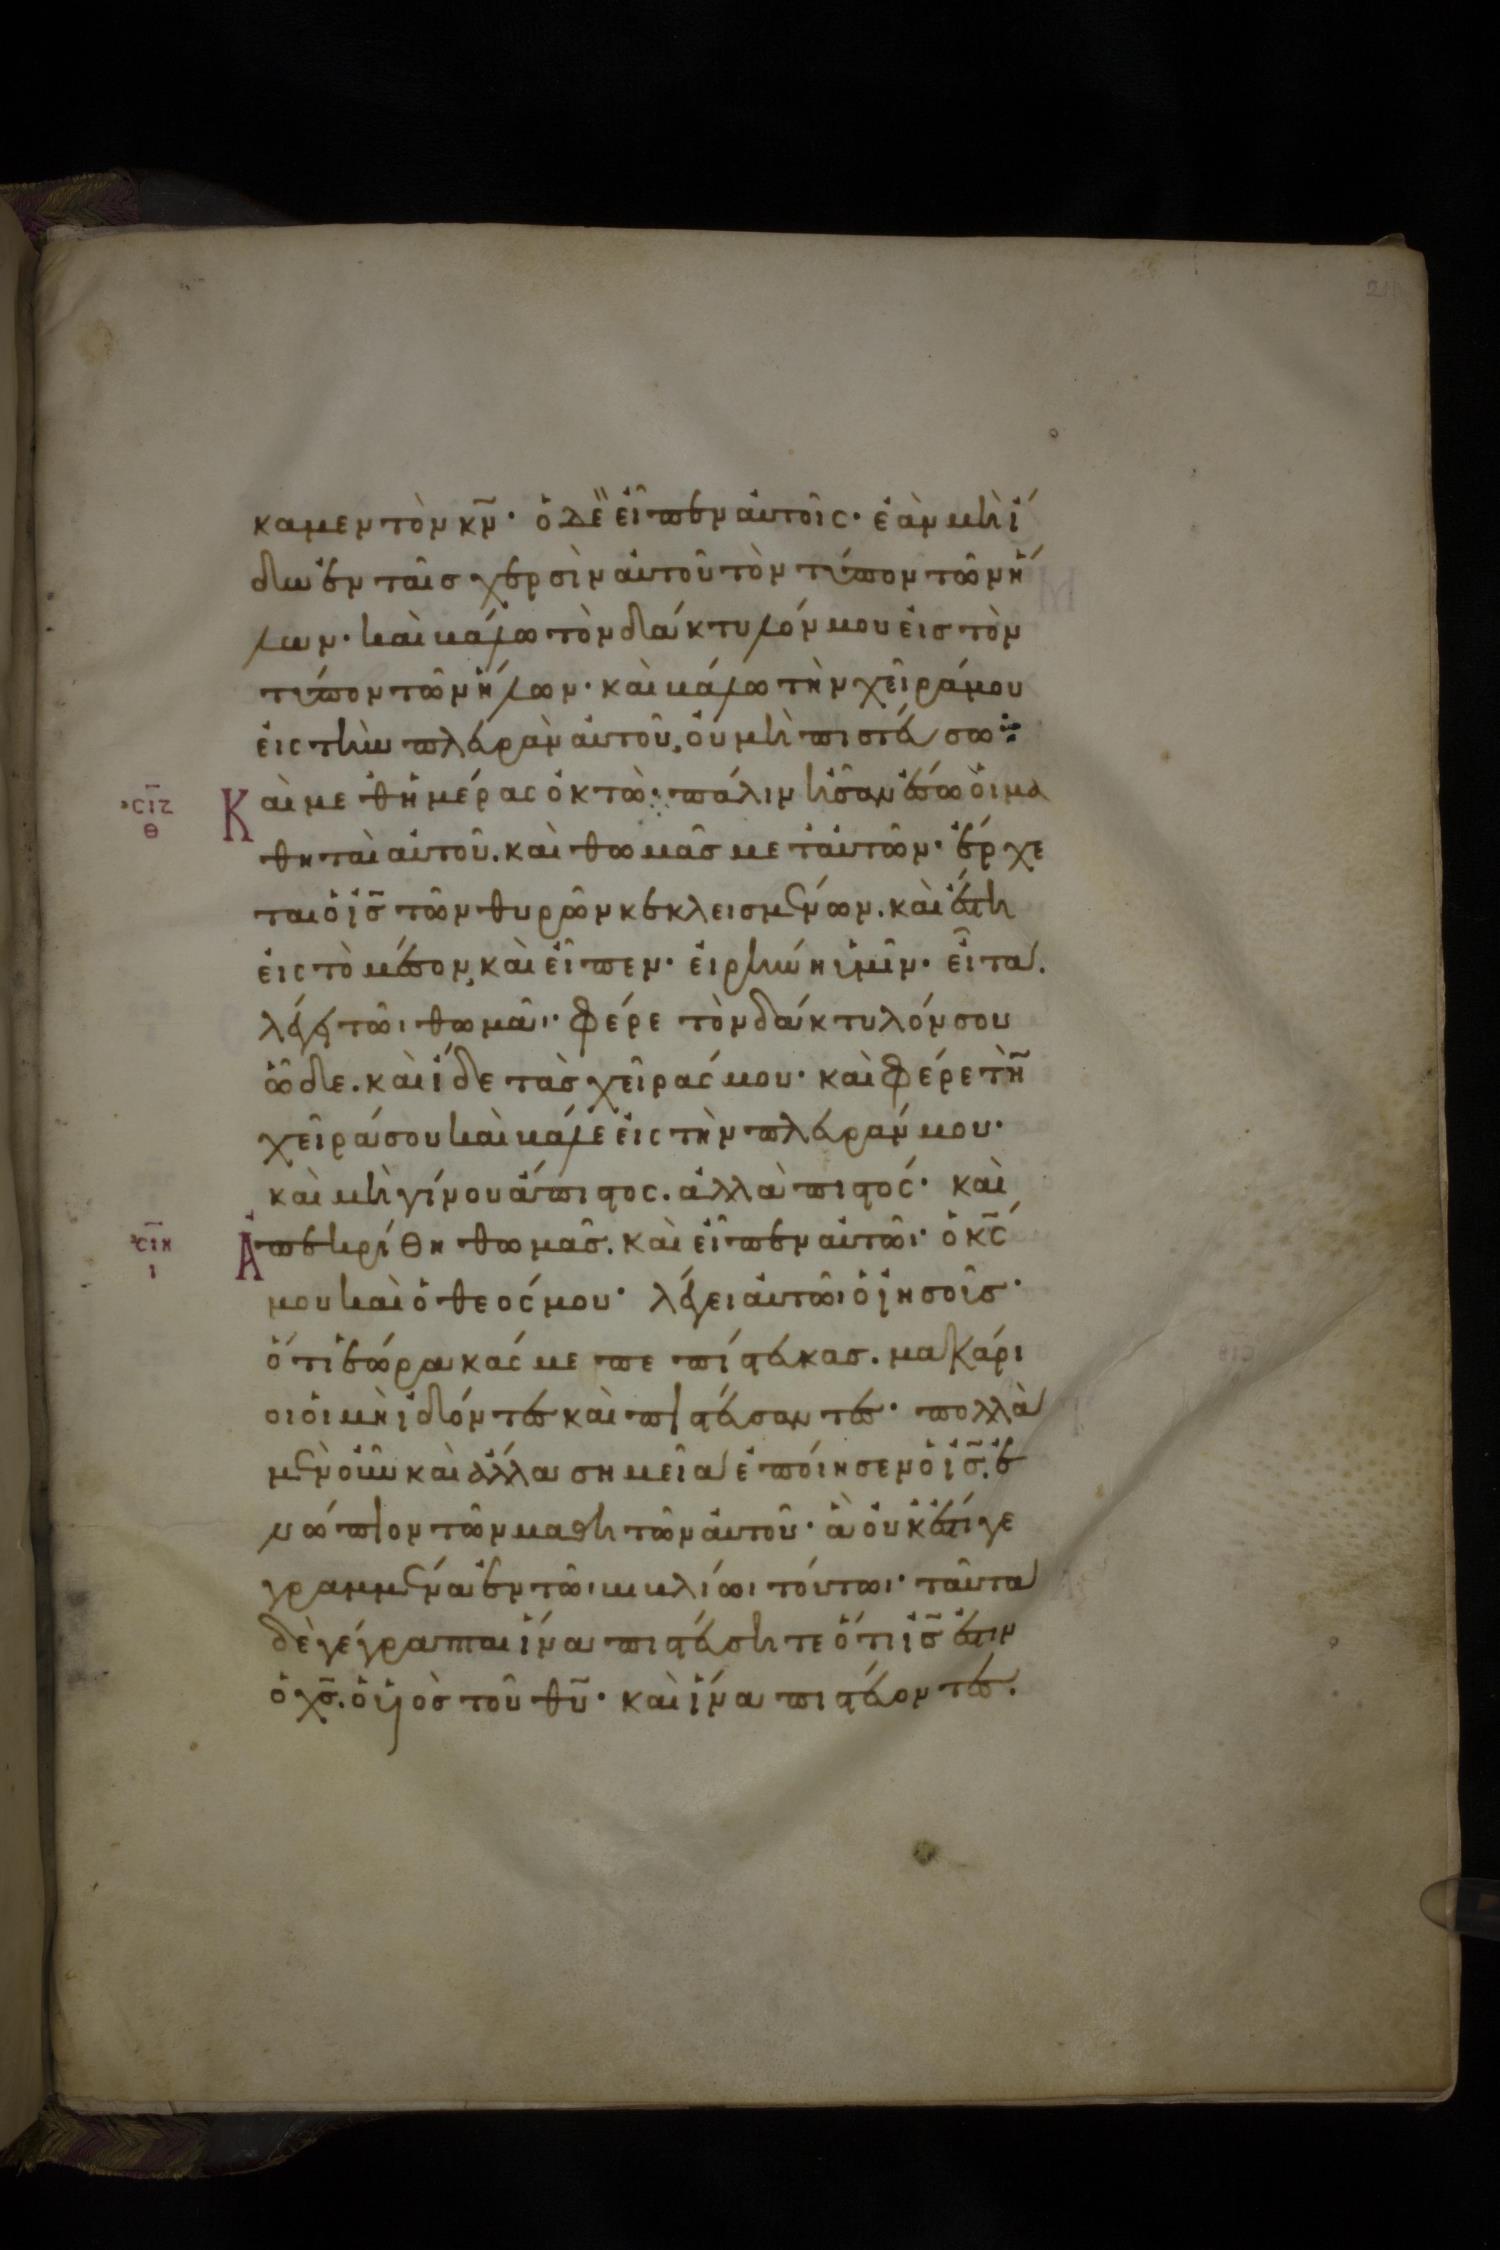 καμεν τὸν κν̄· ὁ δὲ εἶπεν αὐτοῖς· ἐὰν μὴ ἴ
δω ἐν ταῖς χερσὶν αὐτοῦ τὸν τύπον τῶν ἥ
λων· καὶ βάλω τὸν δάκτυλόν μου εἰς τὸν
τύπον τῶν ἥλων· καὶ βάλω τὴν χεῖρά μου
εἰς τὴν πλευρὰν αὐτοῦ, οὐ μὴ πιστεύσω:
σιζ
θ
Καὶ μεθ ἡμέρας ὀκτὼ· πάλιν ἦσαν ἔσω οἱ μα
θηταὶ αὐτοῦ. καὶ θωμᾶς μετ αὐτῶν· ἔρχε
ται ὁ ις̄ τῶν θυρῶν κεκλεισμένων. καὶ ἔστη
εἰς τὸ μέσον, καὶ εἶπεν· εἰρήνη ὑμῖν· εἶτα
λέγει τῶι θωμᾶι· φέρε τὸν δάκτυλόν σου
ὧδε. καὶ ἴδε τὰς χεῖρας μου· καὶ φέρε τὴν
χεῖρά σου καὶ βάλε εἰς τὴν πλευράν μου·
καὶ μὴ γίνου ἄπιστος. ἀλλὰ πιστός· καὶ
σιη
ι
Ἀπεκρίθη θωμᾶς. καὶ εἶπεν αὐτῶι· ὁ κς̄
μου καὶ ὁ θεός μου· λέγει αὐτῶι ὁ ἰησοῦς·
ὅτι ἑώρακάς με πεπίστευκας. μακάρι
οι οἱ μὴ ἰδόντες καὶ πιστεύσαντες· πολλὰ
μὲν οὖν καὶ ἄλλα σημεῖα ἐποίησεν ὁ ις̄. ἐ
νώπιον τῶν μαθητῶν αὐτοῦ· ἃ οὐκ ἔστι γε
γραμμένα ἐν τῶι βιβλίωι τούτωι· ταῦτα
δὲ γέγραπται ἵνα πιστεύσητε ὅτι ις̄ ἐστιν
ὁ χς̄. ὁ υἱὸς τοῦ θῡ· καὶ ἵνα πιστεύοντες.